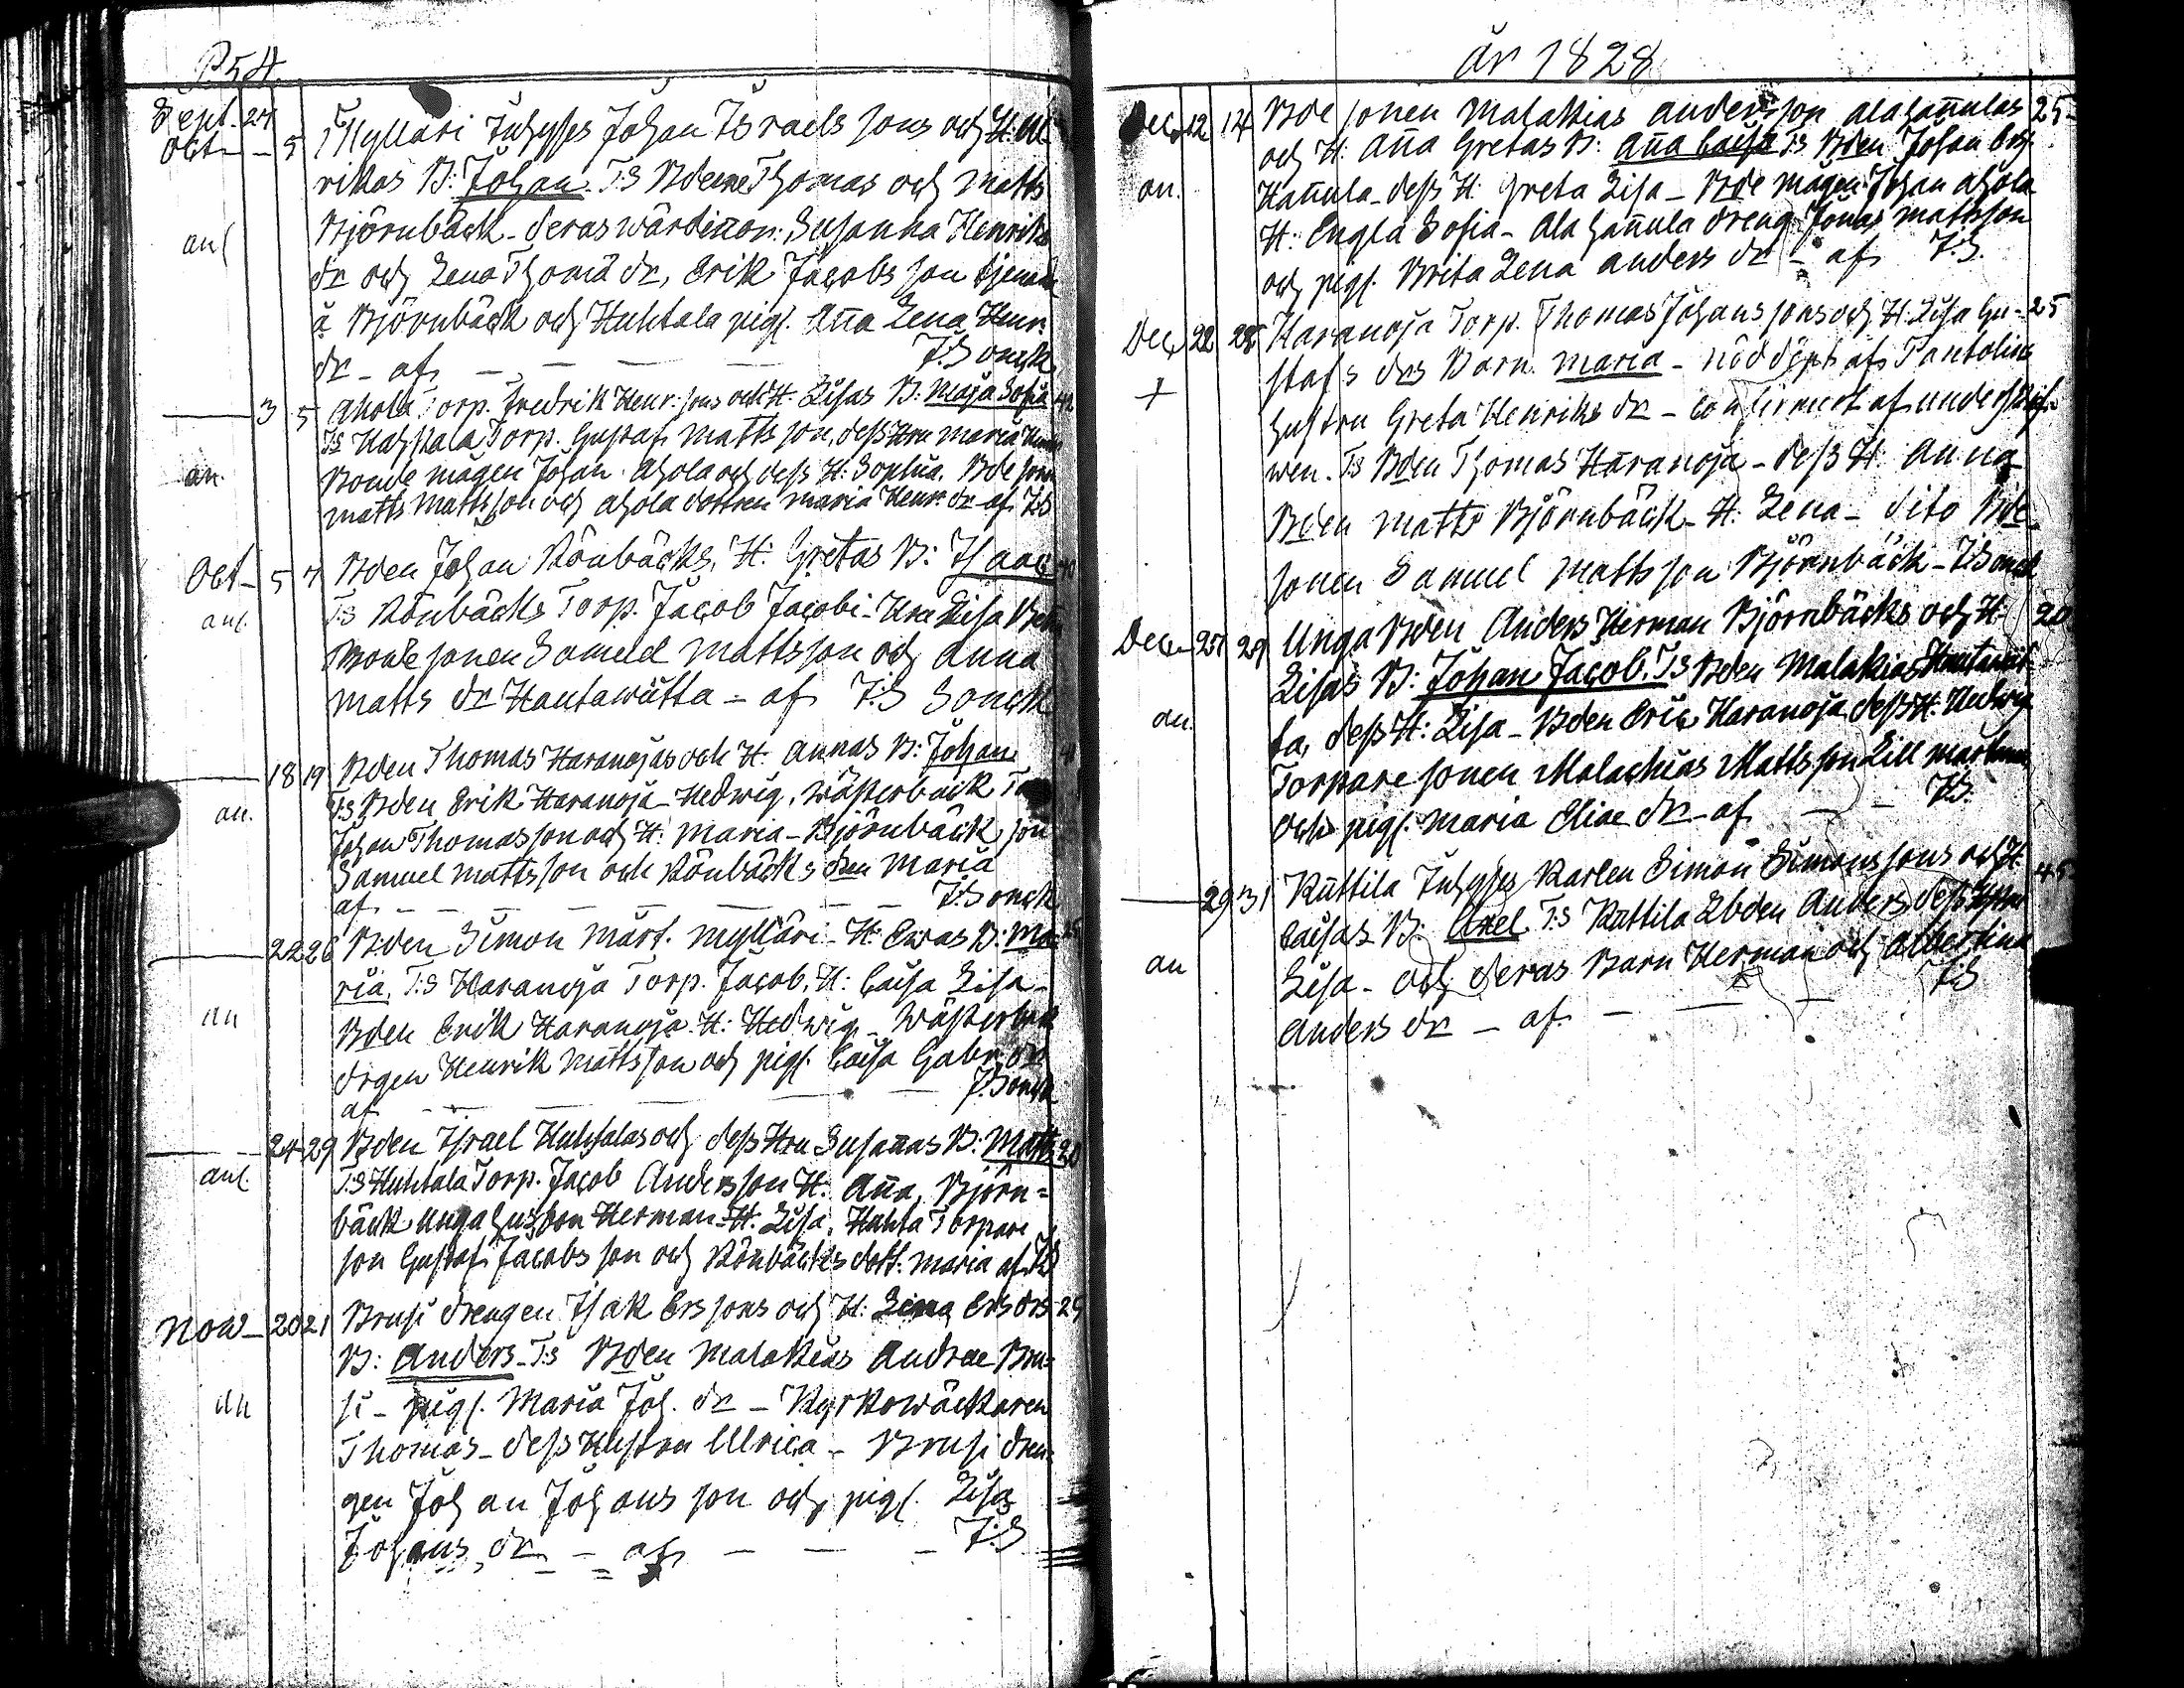 P 54.
Sept. 27
Oct — 5 Mylläri Inhyses Johan Israels sons och H: Ul
rikas B: Johan. T:S Bderne Thomas och Matts
anf Björnbäck - deras wärdinnor: Susanna Henriks
dr och Lena Thomæ dr, Erik Jacobs son tjenande
å Björnbäck och Huhtala pigs. Anna Lena Henr.
dr - af — — — J:Sonck
— 3 5 Ahola Torp. Fredrik Henr: sons och H: Lisas B: Maja Sofia
T:S Torp. Gustaf Matts son, dess Hru Maria
an. Bonde mågen Johan Ahola och dess H: Sophia. Bde son
Matts Mattsson och Ahola dottren Maria Henr: dr - af. J:S
Oct — 5 7 Bden Johan Rönbäcks, H: Gretas B: Isaac
anf. T:S Rönbäcks Torp. Jacob Jacobi - Hru Lisa
Bonde sonen Samuel Mattsson och Anna
Matts dr Hautawiitta - af J:S Sonck
— 18 19 Bden Thomas Haranojas och H. Annas B: Johan
an. T:S Bden Erik Haranoja - Hedwig. Wästerback
Johan Thomasson och H: Maria - Björnbäck son
Samuel Mattsson och Rönbäcks dren Maria
af — — — — — J:Sonck
— 22 26 Bden Simon Mårt. Mylläri - H: Ewas B: Ma- 25
ria, T:S Haranoja Torp. Jacob, H: Caisa Lisa -
an Bden Erik Haranoja H: Hedwig - Wästerback
drgen Henrik Mattsson och pigs. Caisa Gabr. dr
af — — — — J:Sonck
— 24 29 Bden Israel Huhtalas och dess Hru Susannas B: Matts 20
anf. T:S Huhtala Torp. Jacob Andersson H: Anna, Björn=
bäck unga husbon Herman - H: Lisa, Huhta Torpare
son Gustaf Jacobs son och Rönbäcks dott: Maria af J:S
Now — 20 21 Brusi drengen Isak Ers sons och H: Lena Ers drs 25
B: Anders - T:S Bden Malakias Andreæ Bru=
an si - pigs. Maria Joh. dr - Kyrkowäcktaren
Thomas - dess Hustru Ulrica - Brusi dren=
gen Johan Johans son och pigs. Lisa
Johans dr — af — — — J:S
år 1828
Dec 12 14 Bde sonen Malakias Andersson Alahannulas 25
och H: Anna Gretas B: Anna Caisa T:S Bden Johan
an. Hannula - dess H: Greta Lisa - Bde mågen Johan Ahola
H: Engla Sofia - Alahannula dreng Jonas Mattsson
och pigs. Brita Lena Anders dr - af J:S.
Dec 22 28 Haranoja Torp. Thomas Johans sons och H: Lisa Gu= 25
+ stafs drs Barn Maria - nöddöpt af Pantolin
hustru Greta Henriks dr - confirmert af
wen. T:S Bden Thomas Haranoja - dess H: Anna
Bden Matts Björnbäck - H: Lena - dito Bde
sonen Samuel Matts son Björnbäck - J:Sonck
Dec — 27 29 Unga Bden Anders Herman Björnbäcks och H: 20
Lisas B: Johan Jacob. T:S Bden Malakias Hautawiit-
an. ta, dess H: Lisa - Bden Eric Haranoja dess H: Hedwig
Torpare sonen Malachias Mattsson Lill
och pigs. Maria Eliæ dr - af — — J:S.
— 29 31 Ruttila Inhyses Karlen Simon Simons sons och H: 45
Caisas B: Axel T:S Ruttila Ebden Anders dess hustru
an Lisa - och deras Barn Herman och Albertina
Anders dr - af — — — J:S